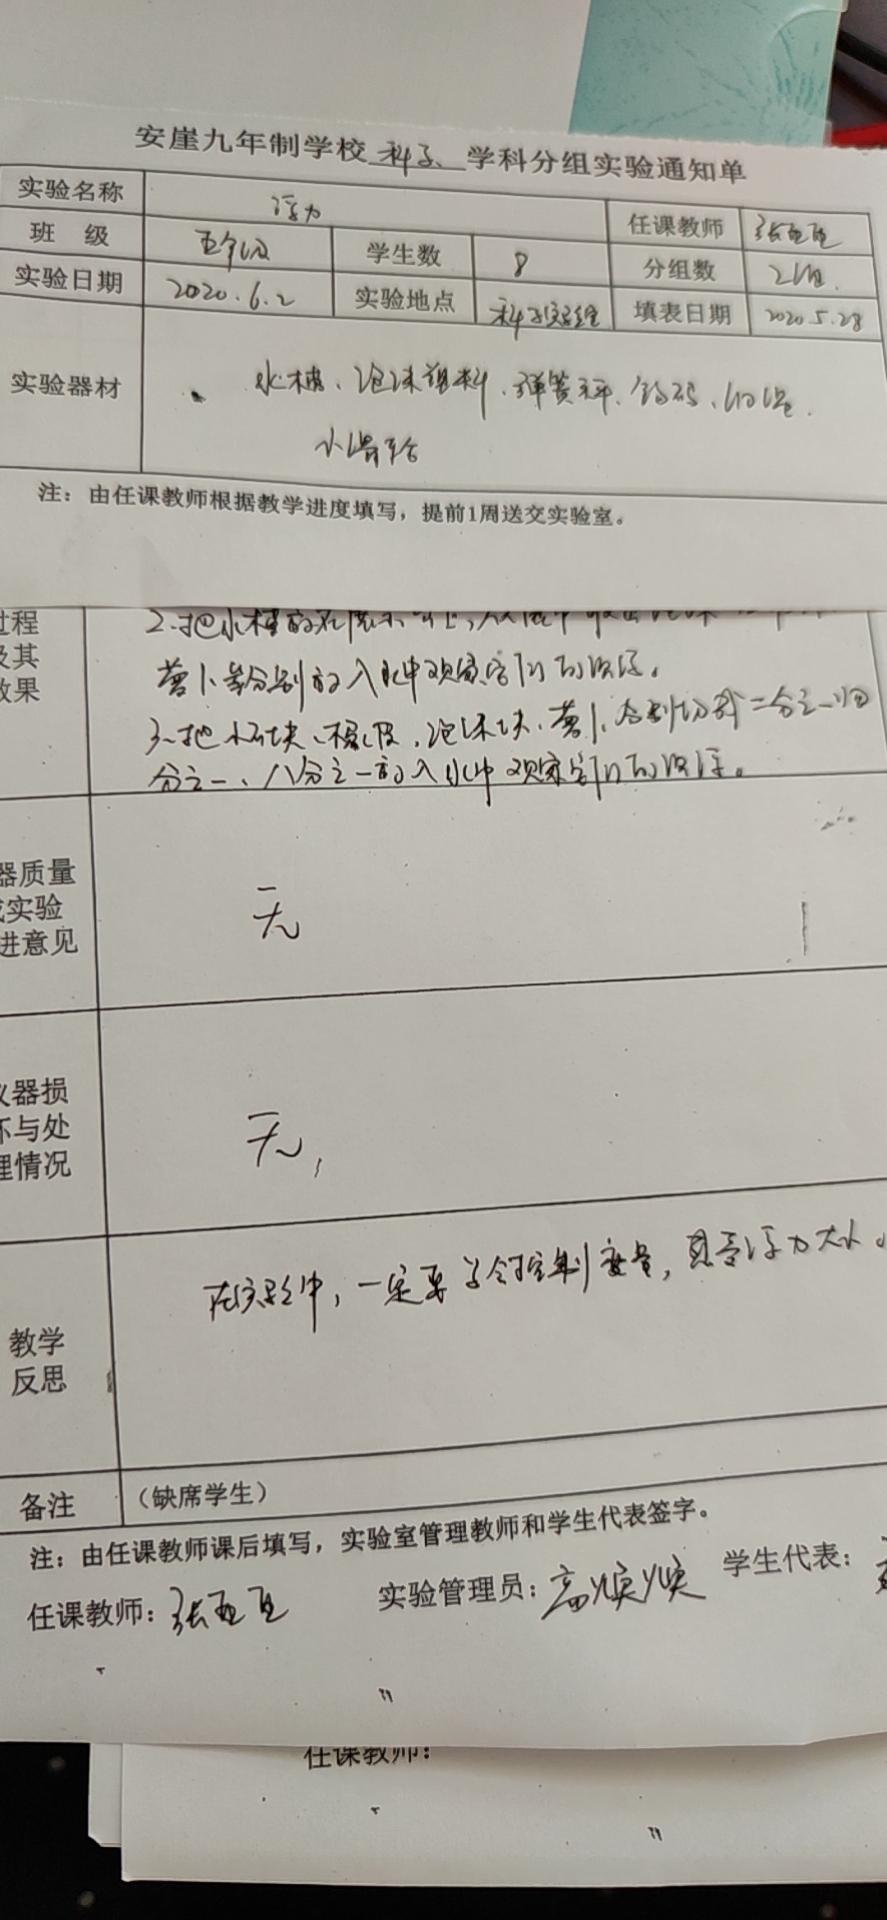 安崖九年制学校 科学 学科分组实验通知单
实验名称 浮力 任课教师 张
班 级 五年级 学生数 8 分组数 2组
实验日期 2020.6.2 实验地点 科学实验室 填表日期 2020.5.28
实验器材 水槽、泡沫塑料、弹簧秤、钩码、
小滑轮
注：由任课教师根据教学进度填写，提前1周送交实验室。
过程 2.把水槽
及其 萝卜等分别放入水中观察它们的沉浮。
效果 3.把小石块、橡皮、泡沫块、萝卜分别切成二分之一、四
分之一、八分之一放入水中观察它们的沉浮。
器质量
实验 无
进意见
仪器损
坏与处 无，
理情况
在实验中，一定要学会控制变量，且 浮力大小
教学
反思
备注 （缺席学生）
注：由任课教师课后填写，实验室管理教师和学生代表签字。
任课教师：张 实验管理员：高焕焕 学生代表：
任课教师：